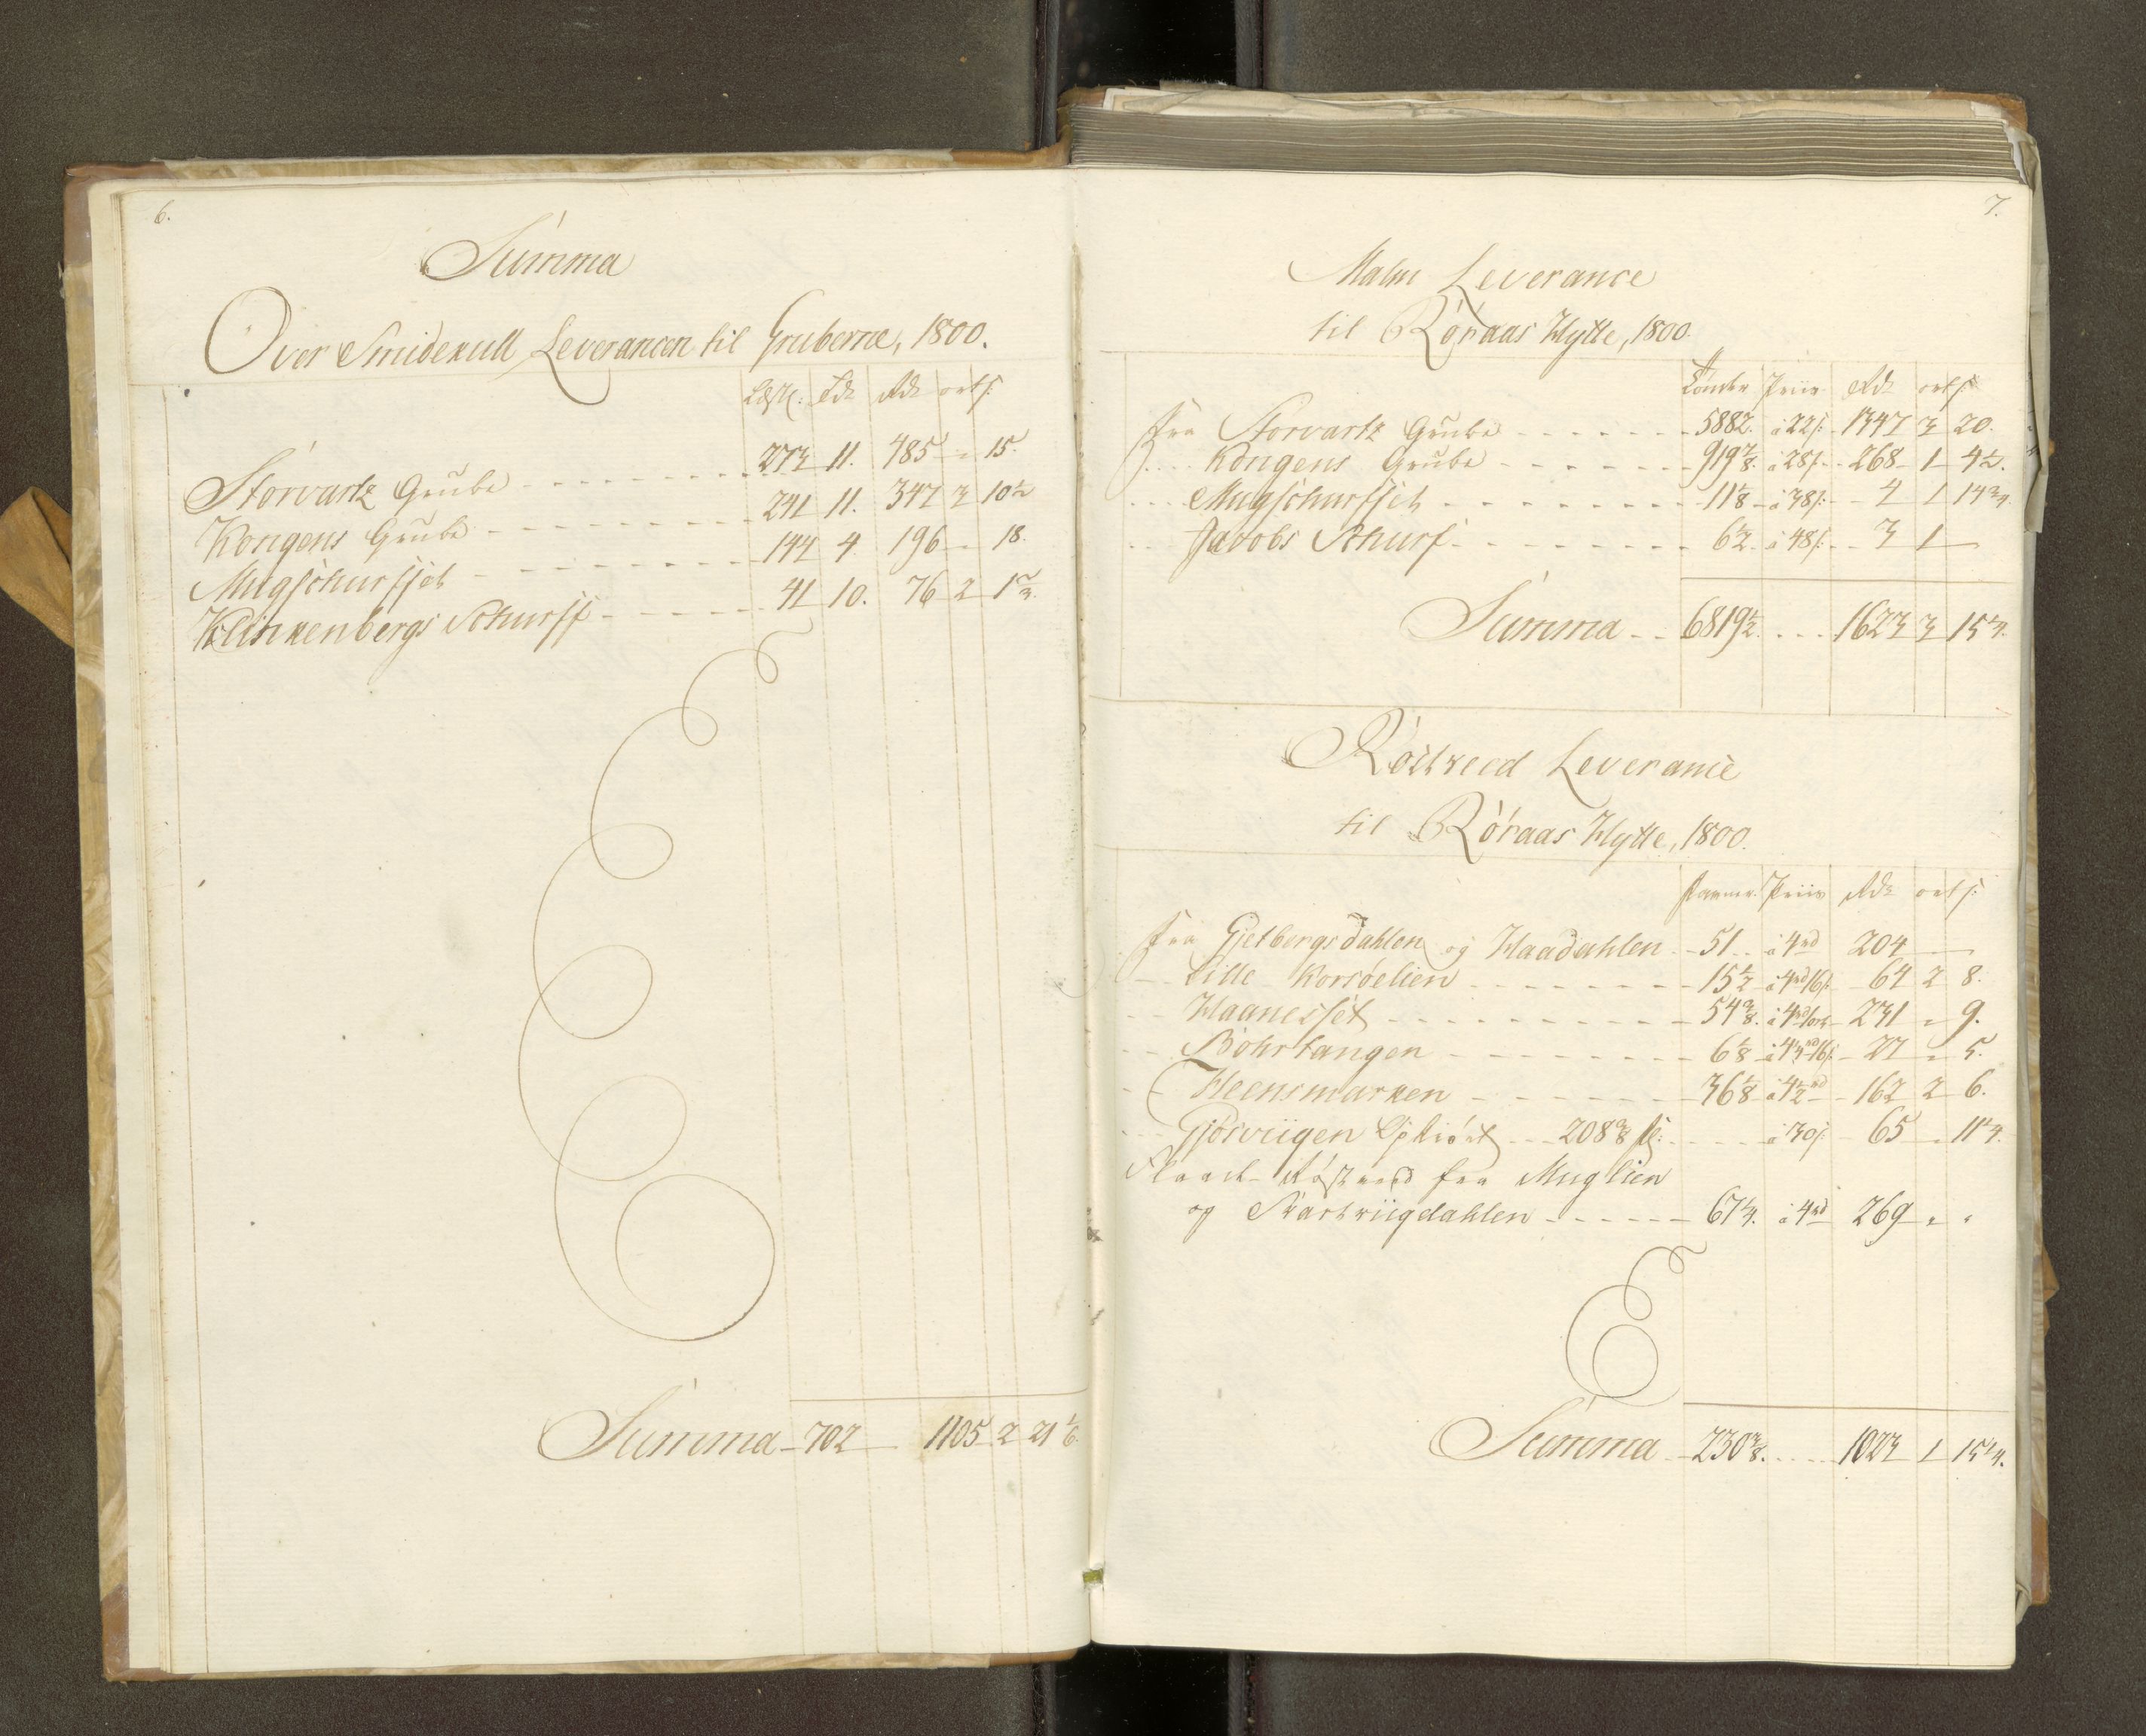 6.
Summa
Over Smidekull Leverancen til Gruberne, 1800.
Læst: Tdr Rdr ort s:
Storvartz Grube - - - - 273 11. 485 " 15.
Kongens Grube - - - - 241 11. 347 3 10½
Mugschurffset - - - - 144 4. 196 " 18.
Klinkenbergs Schurff - - - - 41 10. 76 2 1⅔.
Summa - 702 — 1105 2 21⅙.
7.
Malm Leverance
til Röraas Hytte, 1800.
Tönder Priis Rdr ort s:
fra Storvartz Grube - - - - 5882. à 22s: 1347 3 20.
- - Kongens Grube - - - - 919⅞. à 28s: 268 1 4½.
- - Mugschurffset - - - - 11⅛ à 38s: 4 1 14¾.
- - Jacobs Schurf - - - - 6½ à 48s: 3 1 —
Summa - - 6819½. - - - 1623 3 15¼.
Röstveed Leverance
til Röraas Hytte, 1800.
Favner Priis Rdr ort s:
fra Gjetbergsdahlen og Haadahlen - 51 - à 4rd 204 —
- - Lille Korsöelien - - - - 15½ à 4rd 16s: 64 2 8.
- - Haanesset - - - - 54⅜. à 4rd 1ort 231 " 9.
- - Böhrtangen - - - - 6⅛ à 4¼rd 16s: 27 " 5.
- - Heensmarken - - - - 36⅛ à 4½rd 162 2 6.
- - Gjösviigen - - 208⅜ - - à 30s: 65 " 11¼.
Flaad-Röstveed fra Muglien
og Svartviigdahlen - - - - 67¼. à 4rd 269 " "
Summa - 230⅜. - - - 1023 1 15¼.